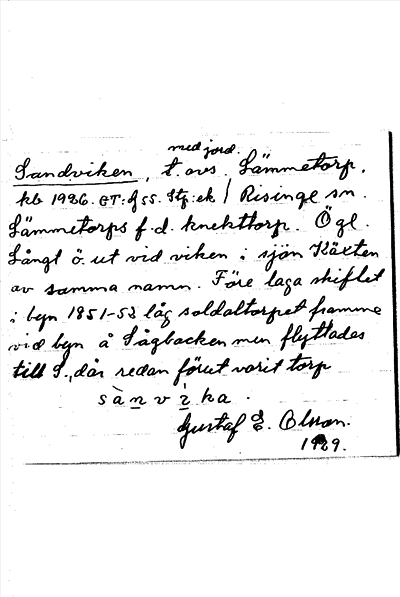 med jord.
Sandviken, t. avs. Lämmetorp.
kb 1926. GT: f 55. Stf: ek / Risinge sn.
Lämmetorps f.d. knekttorp. Ögl.
Långt ö. ut vid viken i sjön Käxten
av samma namn. Före laga skiftet
i byn 1851-53 låg soldattorpet framme
vid byn å Lågbacken men flyttades
till S., där redan förut varit torp
sànvìka.
Gustaf E. Olsson.
1929.